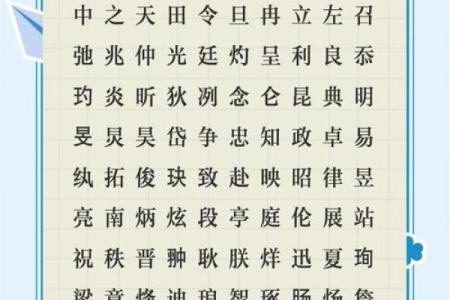 中之天田令旦冉立左召
弛兆仲光廷灼呈利良忝
玓炎昕狄冽念仑昆典明
旻炅昊岱争忠知政卓易
纨拓俊玦致赴映昭律昱
亮南炳炫段亭庭伦展站
祝秩晋翀耿朕烊迅夏珣